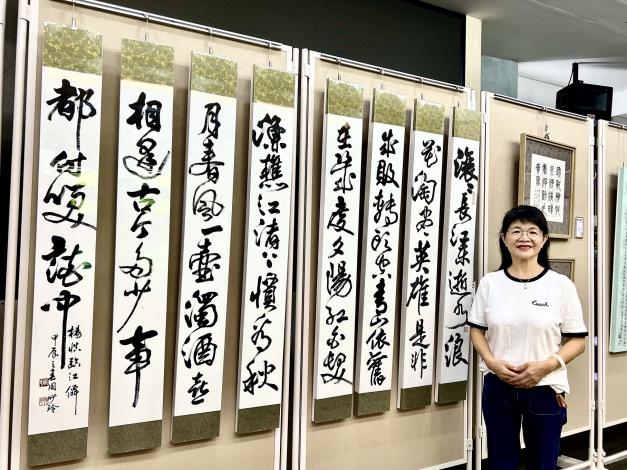 滾々長江東逝水浪
花淘盡英雄是非
成敗轉頭空青山依舊
在幾度夕陽紅白髮
漁樵江渚上慣看秋
月春風一壺濁酒喜
相逢古今多少事
都付笑談中
楊慎臨江仙
甲辰之春周玲
Coach